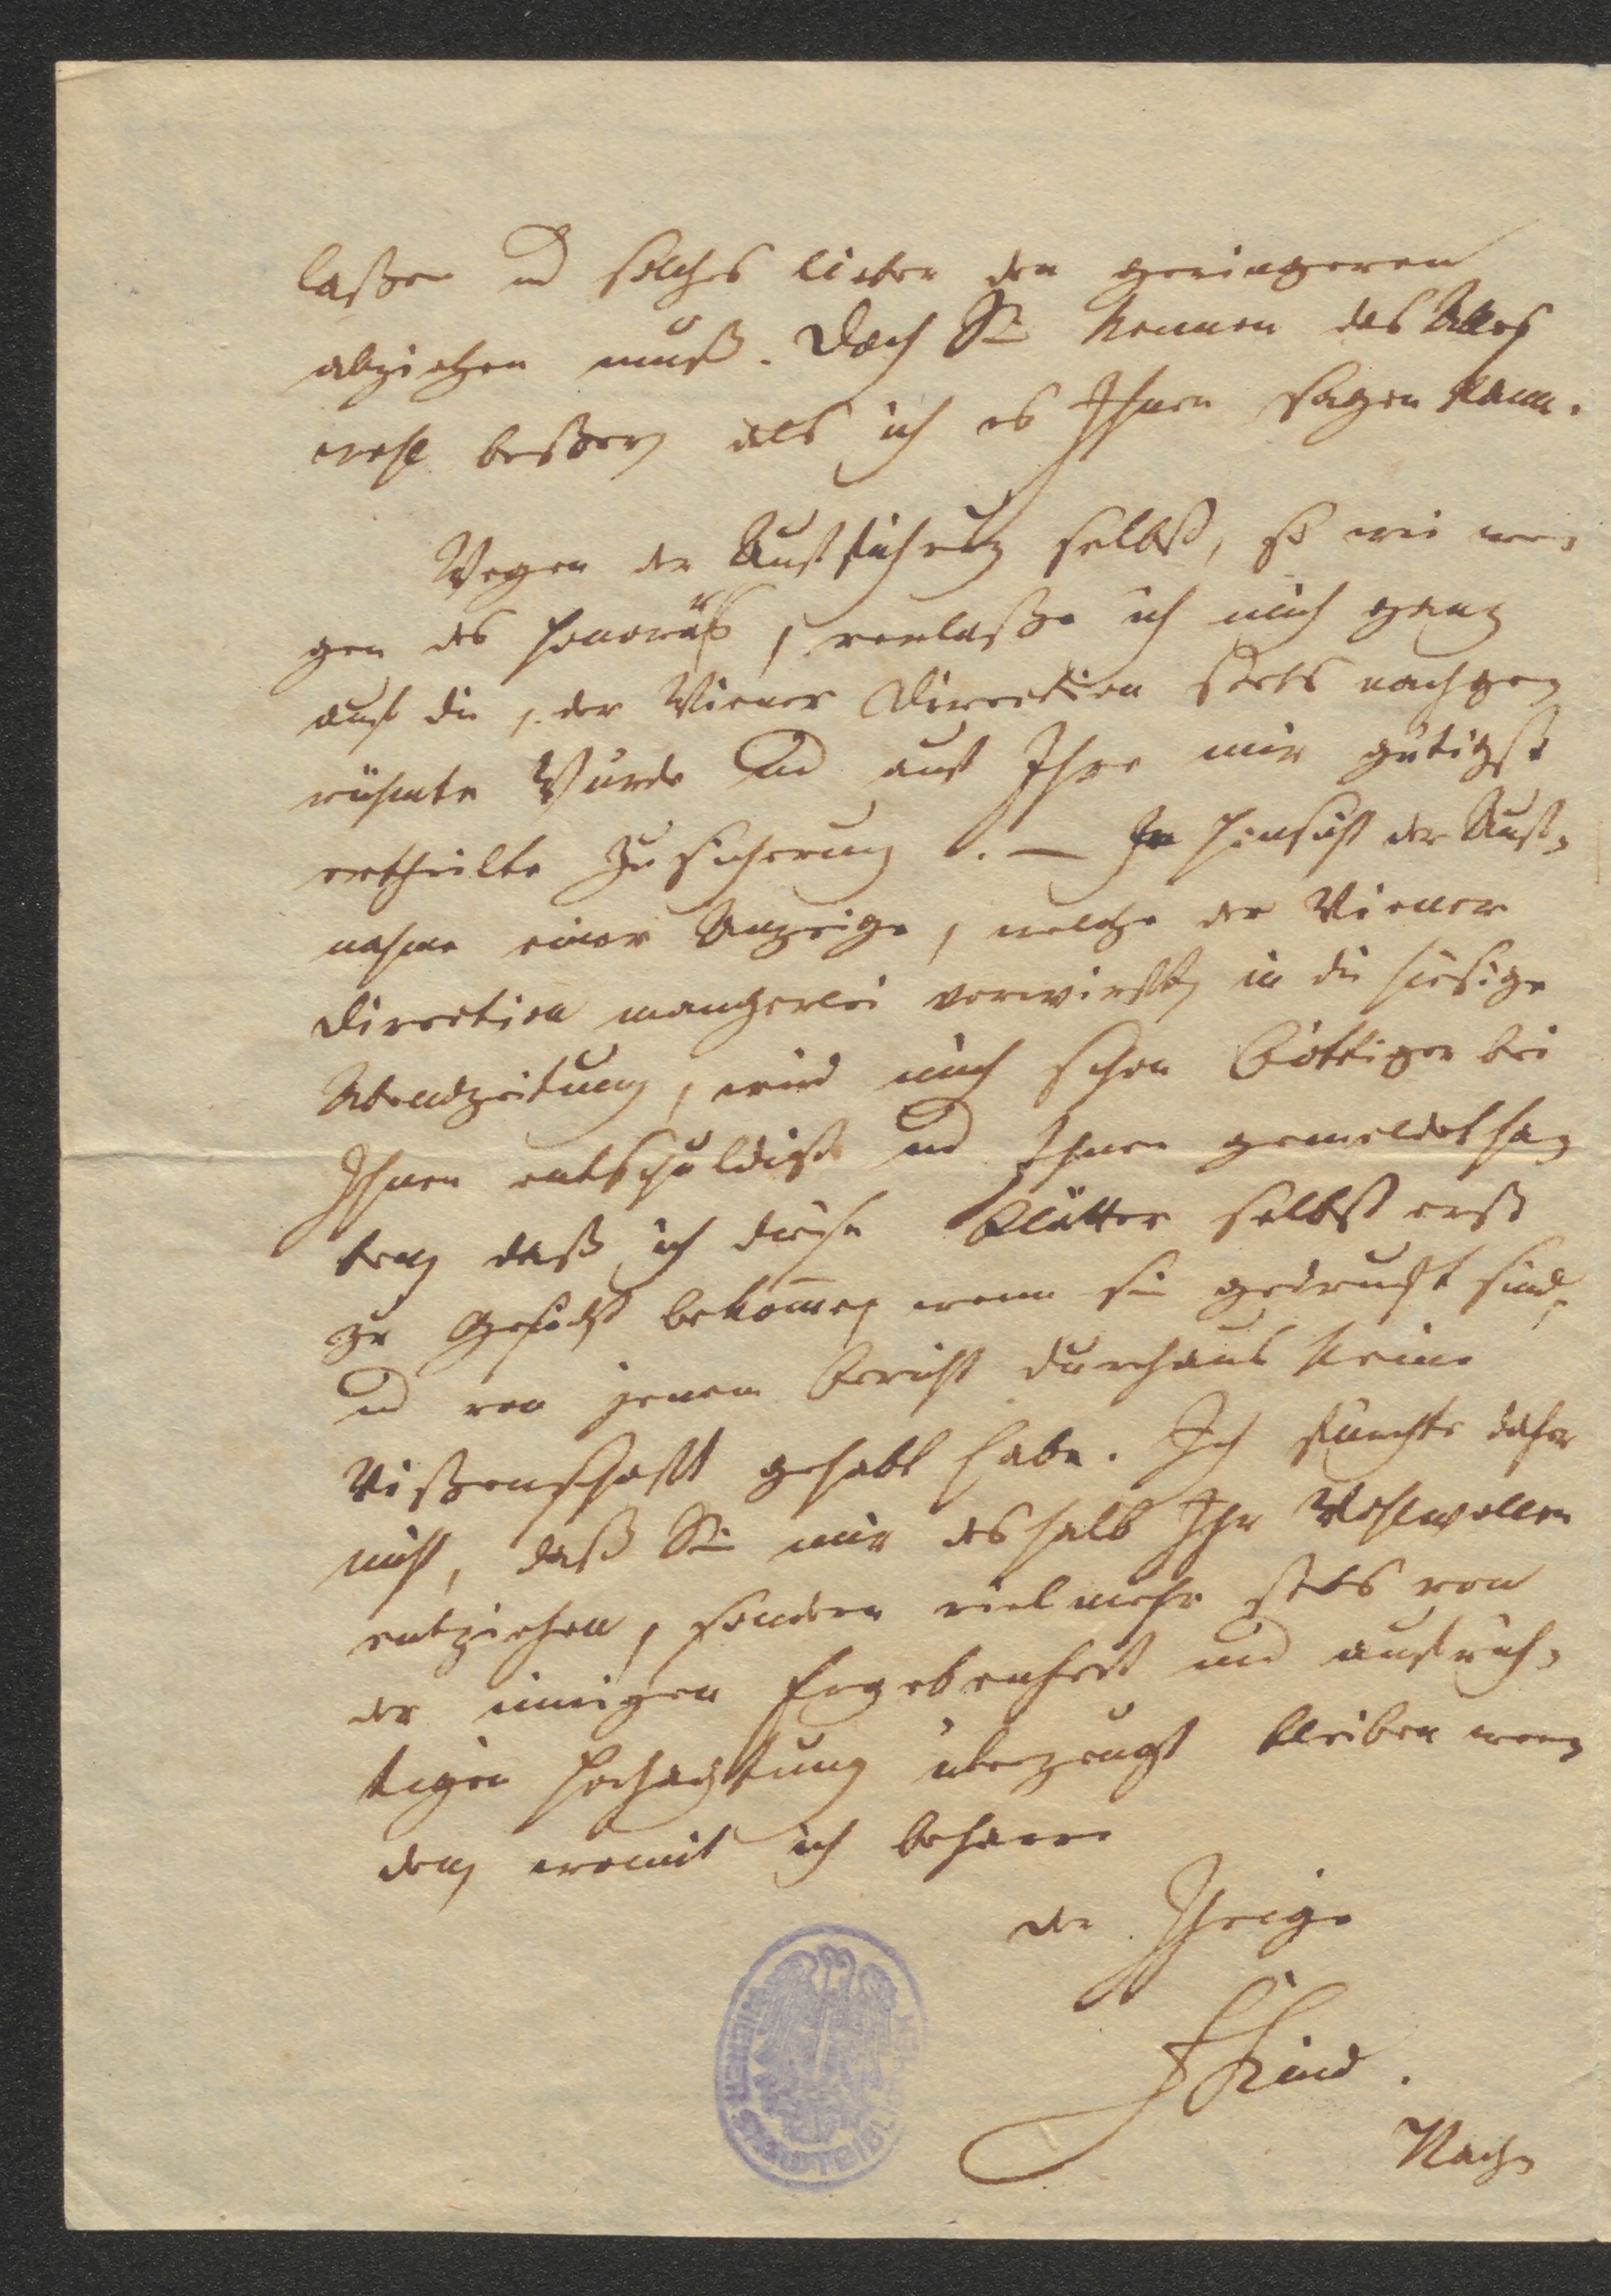 laßen und solches lieber den geringeren
abziehen muß. Doch Sie kennen das Alles
wohl beßer, als ich es Ihnen sagen kann.
Wegen der Aufführung selbst, so wie we-
gen des Honorars, verlaße ich mich ganz
auf die, der Wiener Direction stets nachge-
rühmte Würde und auf Ihre mir gütigst
ertheilte Zusicherung. — In Hinsicht der Auf-
nahme einer Anzeige, welche der Wiener
Direction mancherlei vorwirft, in die hiesige
Abendzeitung, wird mich schon Böttiger bei
Ihnen entschuldigt und Ihnen gemeldet ha-
ben, daß ich diese Blätter selbst erst
zu Gesicht bekomme, wenn sie gedruckt sind,
und von jenem Bericht durchaus keine
Wißenschaft gehabt habe. Ich fürchte daher
nicht, daß Sie mir deshalb Ihr Wohlwollen
entziehen, sondern vielmehr stets von
der innigen Ergebenheit und aufrich-
tigen Hochachtung überzeugt bleiben wer-
den, womit ich beharre
der Ihrige
FKind.
Nach-
WIENER STADTBIBLIOTHEK